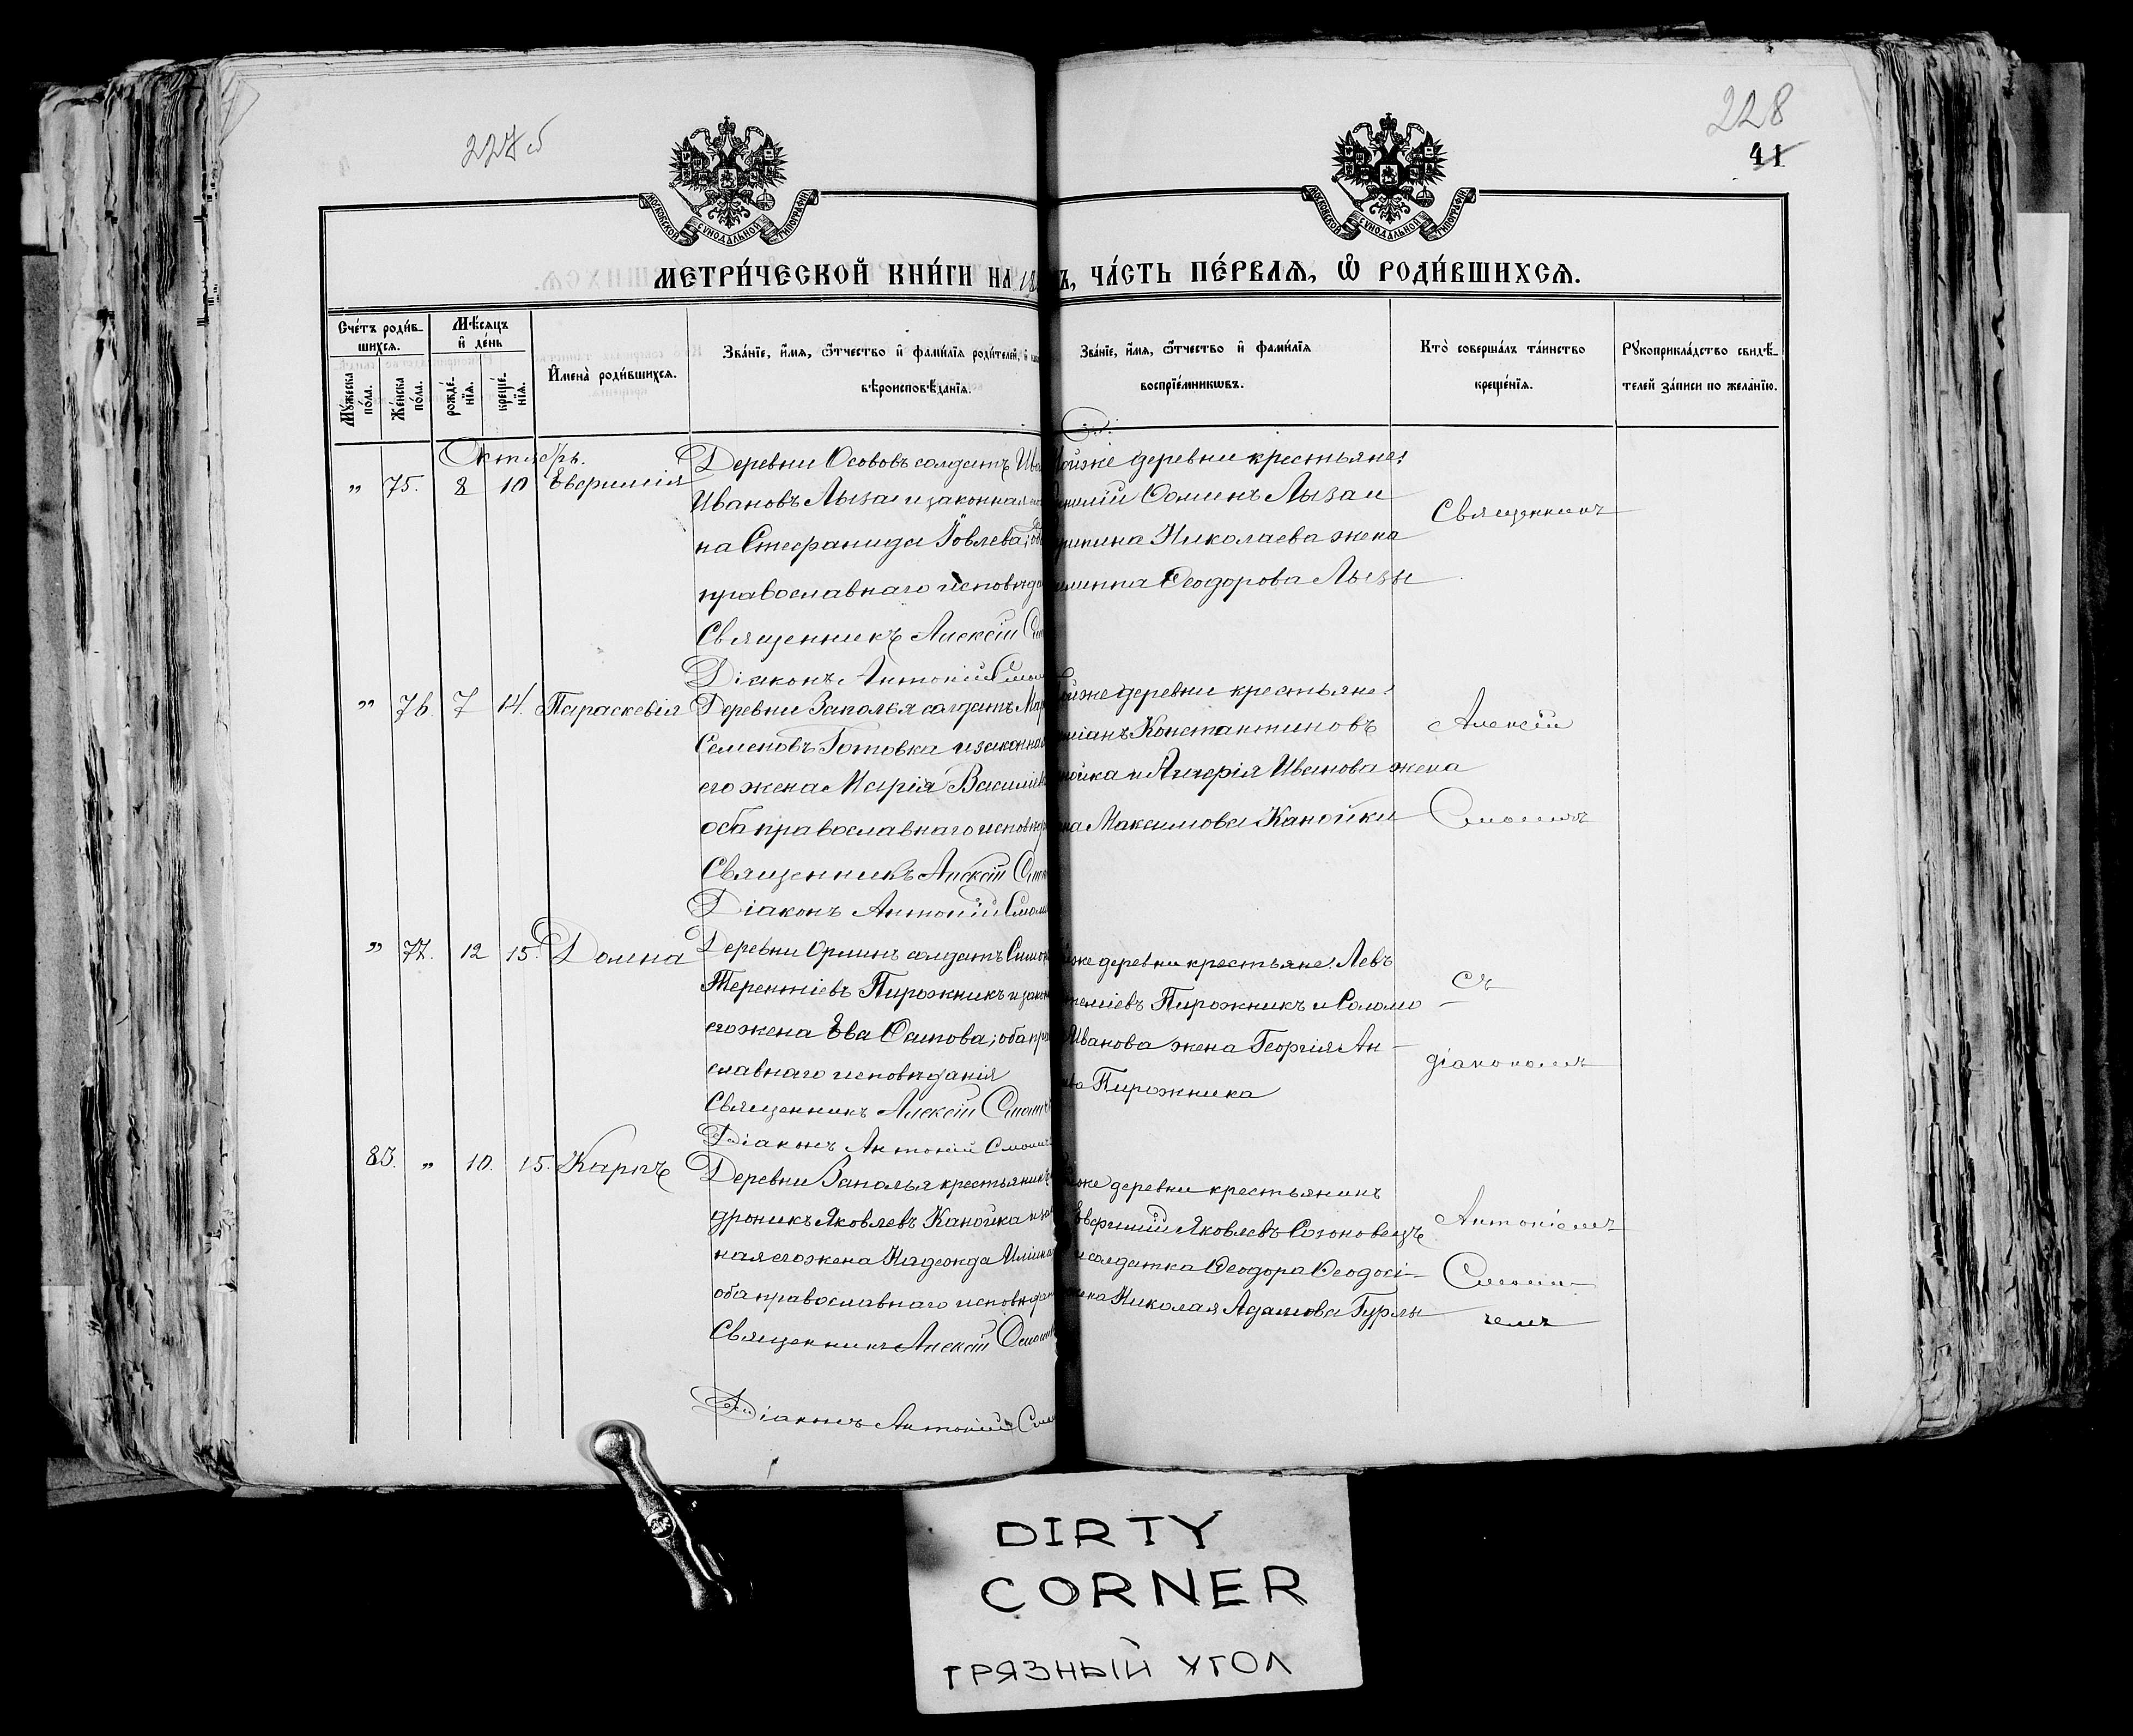 227 об
228
41
МОСКОВСКОЙ СУНОДАЛЬНОЙ ТИПОГРАФІИ
МОСКОВСКОЙ СУНОДАЛЬНОЙ ТИПОГРАФІИ
МЕТРИ́ЧЕСКОЙ КНИ́ГИ НА 18
Ъ, ЧА́СТЬ ПЕ́РВАѦ, Ѡ҆ РОДИ́ВШИХСѦ.
Сче́тъ роди́в-
шихся.
Мꙋ́жеска
по́ла.
Же́нска
по́ла.
Мѣ́сяцъ
и҆ де́нь
рожде́-
нїя.
креще́-
нїя.
И҆мена̀ роди́вшихся.
Зва́нїе, и҆́мя, ѻ҆́тчество и҆ фами́лїя роди́телей, и҆
вѣроисповѣ́данїя.
Зва́нїе, и҆́мя, ѻ҆́тчество и҆ фами́лїя
воспрїе́мникѡвъ.
Кто̀ соверша́лъ та́инство
креще́нїя.
Рꙋкоприкла́дство свидѣ́-
телей за́писи по жела́нїю.
Октябрь.
" 75. 8 10 Евфимія
Деревни Ососовъ солдатъ Ива
Ивановъ Лыза и законная
на Стефанида Іовлева; об
православнаго исповѣда
Священникъ Алексій С
Діаконъ Антоній Смол
ойже деревни крестьяне:
Ѳоминъ Лыза и
Николаева жена
Ѳеодорова Лызы
Священникъ
" 76. 7 14. Параскевія
Деревни Заполья солдатъ Мар
Семеновъ Готовка и законная
его жена Марія Василіев
оба православнаго исповѣд
Священникъ Алексій См
Діаконъ Антоній Смол
ойже деревни крестьяне:
Константиновъ
нойка и Агафія Иванова жена
на Максимова Канойки
Алексій
Смоличъ
" 77. 12 15. Домна
Деревни Орлинъ солдатъ Симон
Терентіевъ Пирожникъ и закон
его жена Ева Осипова; оба пра
славнаго исповѣданія
Священникъ Алексій Смолич
Діаконъ Антоній Смолич
йже деревни крестьяне: Левъ
Пирожникъ и Соломо
Иванова жена Георгія Ан-
ва Пирожника
съ
діакономъ
83. " 10. 15. Карпъ
Деревни Заполья крестьянинъ
дроникъ Яковлевъ Канойка и зак
ная его жена Надежда Илііна
оба православнаго исповѣдан
Священникъ Алексій Смолич
Діаконъ Антоній Смол
йже деревни крестьянинъ
Яковлевъ Созоновецъ
и солдатка Ѳеодора Ѳеодосі-
жена Николая Адамова Гурлы
Антоніемъ
Смоли-
чемъ
DIRTY
CORNER
ГРЯЗНЫЙ УГОЛ